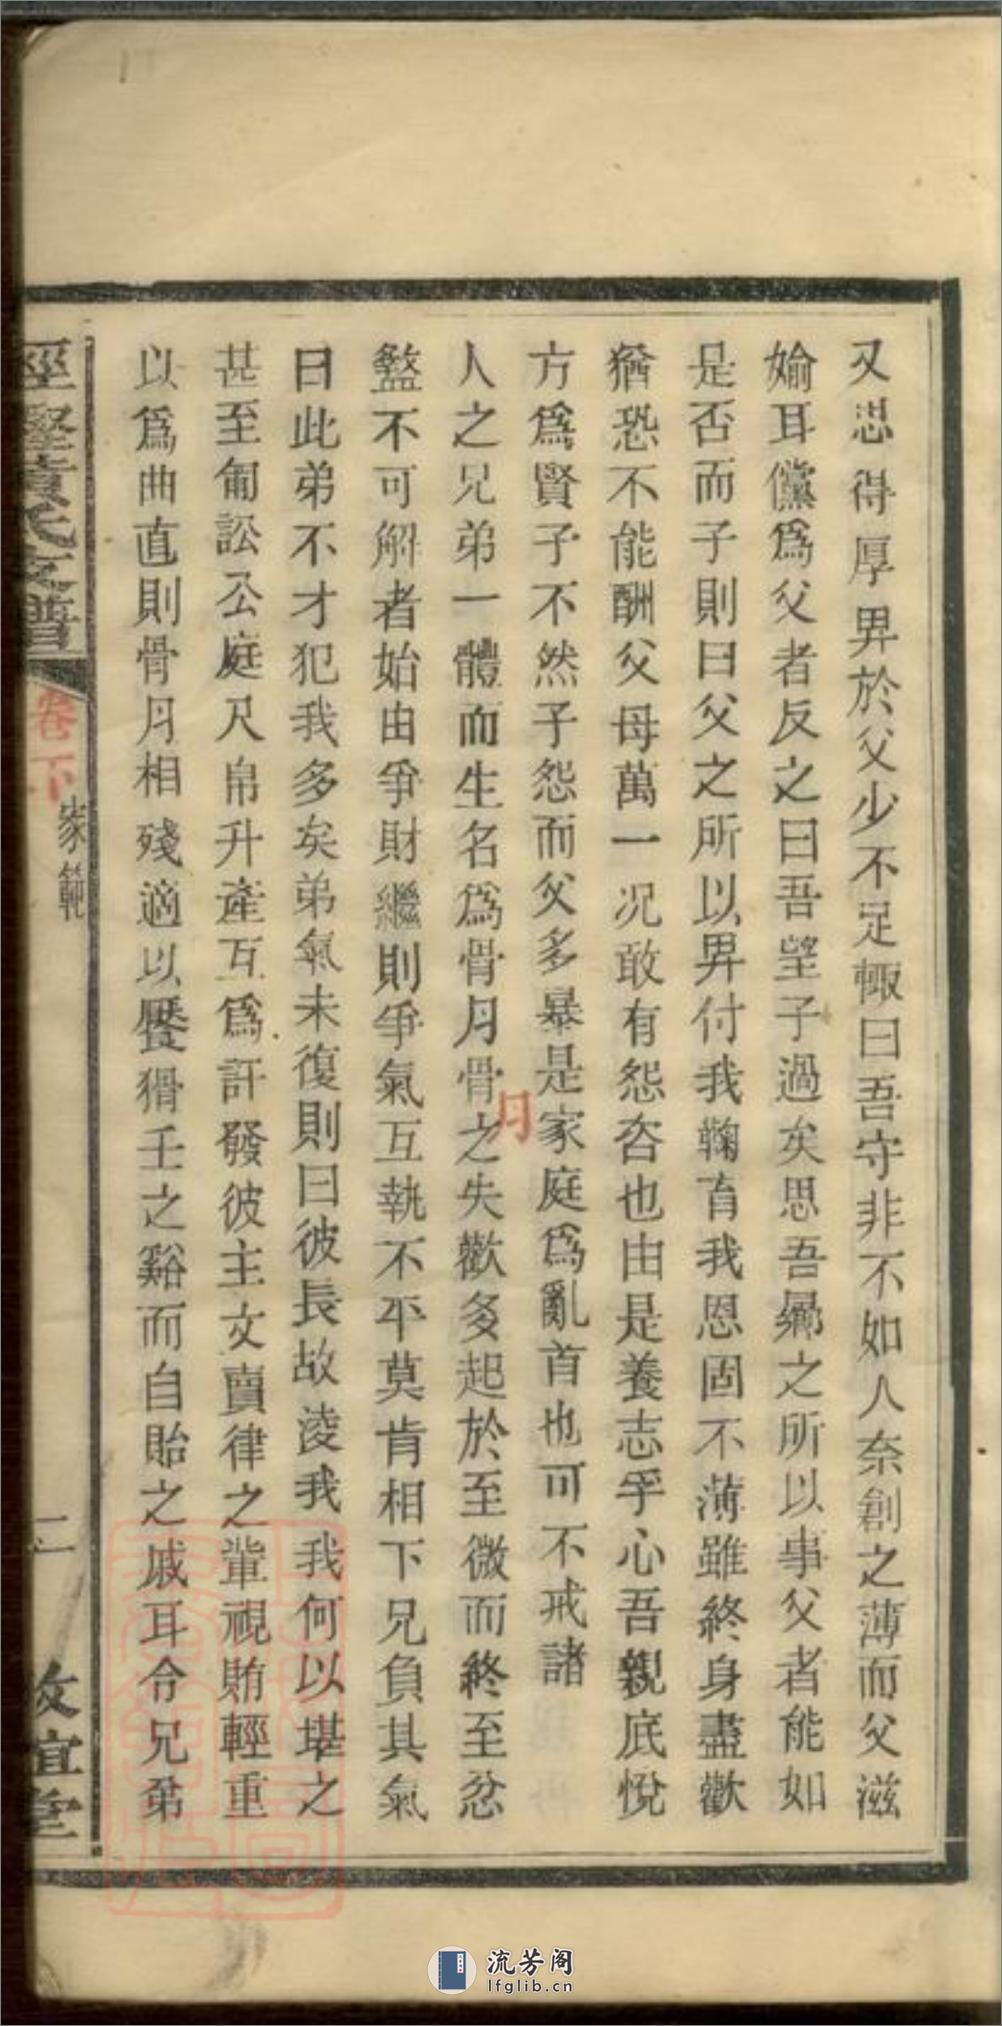 又忿得厚畀於父少不足輙曰吾守非不如人奈創之薄而父滋
媮耳儻爲父者反之曰吾望子過矣思吾曏之所以事父者能如
是否而子則曰父之所以畀付我鞠育我恩固不薄雖終身盡歡
猶恐不能酬父母萬一况敢有怨咨也由是養志乎心吾親底悅
方爲賢子不然子怨而父多暴是家庭爲亂首也可不戒諸
人之兄弟一體而生名爲骨月骨月之失歡多起於至微而終至忿
盭不可解者始由爭財繼則爭氣互執不平莫肯相下兄負其氣
曰此弟不才犯我多矣弟氣未復則曰彼長故淩我我何以堪之
甚至匍訟公庭尺帛升產互爲訐發彼主文賣律之輩視賄輕重
以爲曲直則骨月相殘適以饜猾壬之谿而自貽之戚耳令兄弟
黃氏支譜
卷下
家範
二
敦誼堂
流芳阁
lfglib.cn